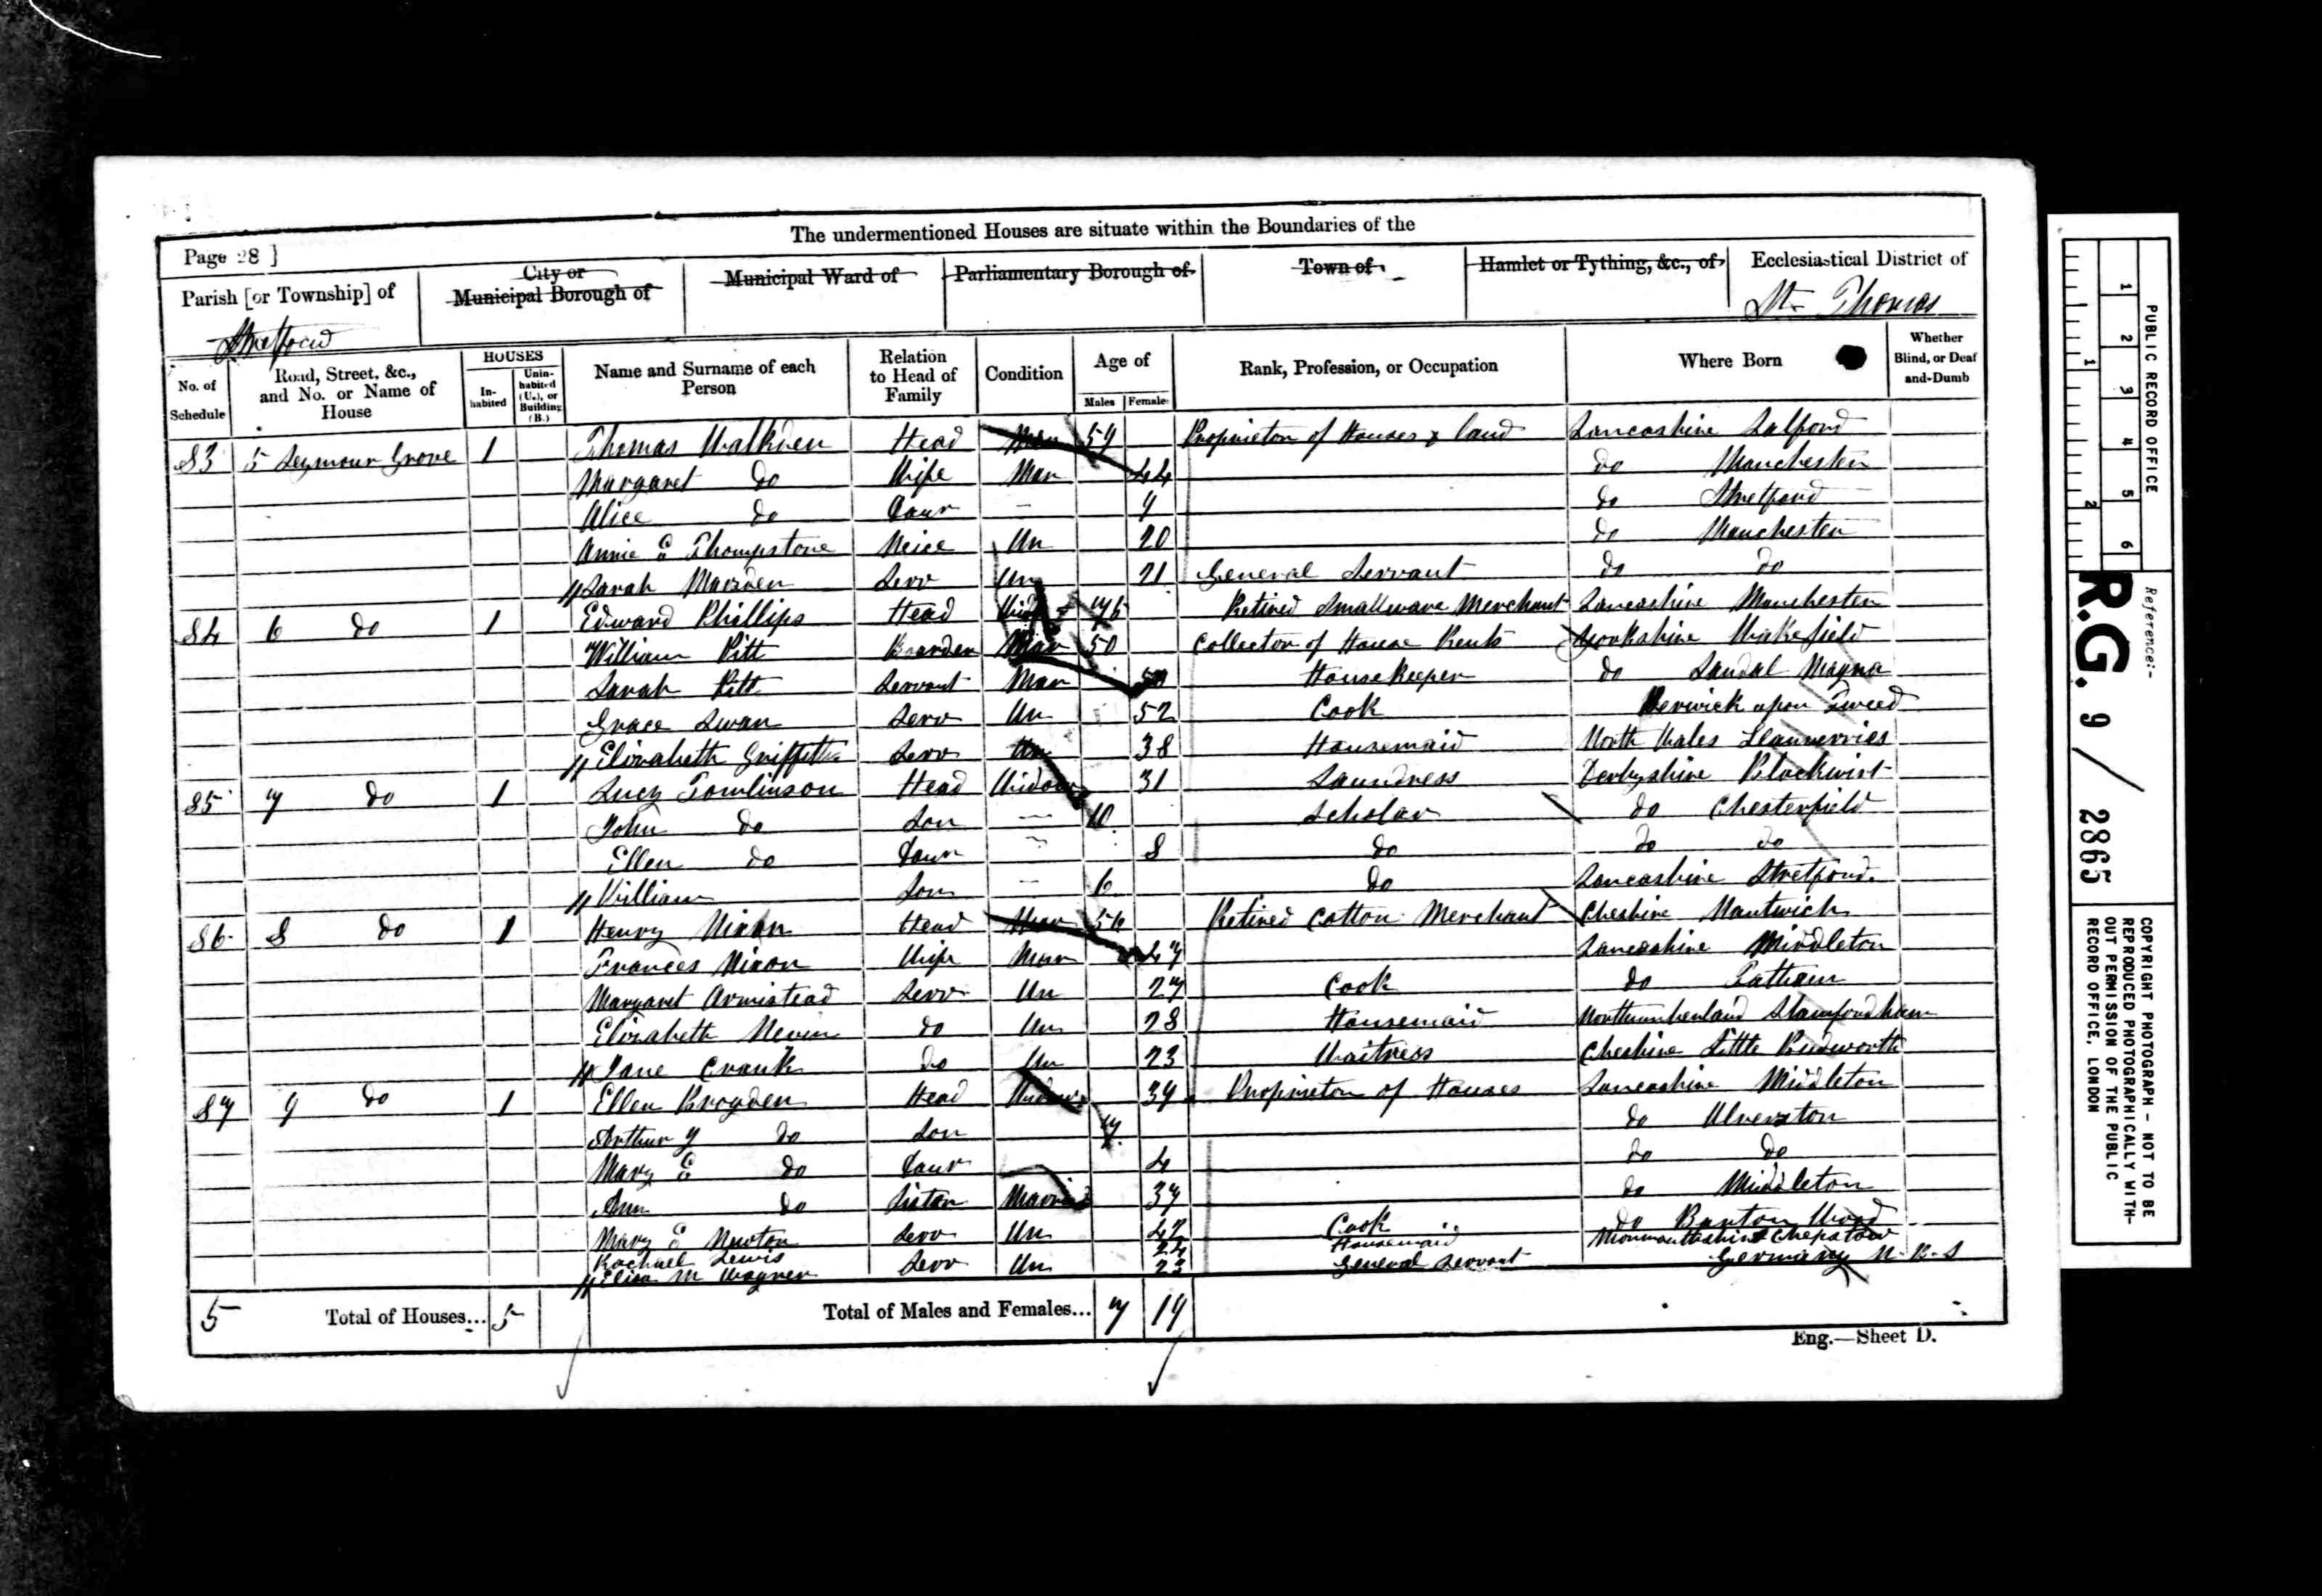 The undermentioned Houses are situate within the Boundaries of the
Page 28 ]
Parish [or Township] of
Stretford
City or Municipal Borough of
Municipal Ward of
Parliamentary Borough of
Town of
Hamlet or Tything, &c., of
Ecclesiastical District of
St. Thomas
No. of Schedule
Road, Street, &c., and No. or Name of House
HOUSES
In-habited
Unin-habited (U.), or Building (B.)
Name and Surname of each Person
Relation to Head of Family
Condition
Age of
Males
Females
Rank, Profession, or Occupation
Where Born
Whether Blind, or Deaf and-Dumb
83 5 Seymour Grove 1 Thomas Walkden Head Mar 59 Proprietor of Houses & land Lancashire Salford
Margaret do Wife Mar 44 do Manchester
Alice do Daur — 9 do Stretford
Annie E Thompstone Neice Un 20 do Manchester
Sarah Marsden Serv Un 21 General Servant do do
84 6 do 1 Edward Phillips Head 76 Retired Smallware Merchant Lancashire Manchester
William Pitt Boarder Mar 50 Collector of House Rents Yorkshire Wakefield
Sarah Pitt Servant Mar Housekeeper do Sandal Magna
Grace Swan Serv Un 52 Cook Berwick upon Tweed
Elizabeth Griffiths Serv Un 38 Housemaid North Wales
85 7 do 1 Lucy Tomlinson Head Widow 31 Laundress Derbyshire
John do Son — 10 Scholar do Chesterfield
Ellen do Daur — 8 do do do
William Son — 6 do Lancashire Stretford
86 8 do 1 Henry Nixon Head Mar 56 Retired Cotton Merchant Cheshire Nantwich
Frances Nixon Wife Mar 47 Lancashire Middleton
Margaret Armistead Serv Un 27 Cook do Tatham
Elizabeth Serv do Un 28 Housemaid Northumberland Stamfordham
Jane Crank do Un 23 Waitress Cheshire Little Budworth
87 9 do 1 Ellen Brogden Head Widow 39 Proprietor of Houses Lancashire Middleton
Arthur Y do Son 7 do Ulverston
Mary E do Daur 4 do do
Ann do Sister Married 37 do Middleton
Mary E Newton Serv Un 42 Cook do Burton Wood
Rachael Lewis 24 Housemaid Monmouthshire Chepstow
Eliza M Wagner Serv Un 23 General Servant Germany N. B. S
5 Total of Houses... 5 Total of Males and Females... 7 19
Eng.—Sheet D.
PUBLIC RECORD OFFICE
1 2 3 4 5 6
1 2
Reference:-
R.G. 9 / 2865
COPYRIGHT PHOTOGRAPH - NOT TO BE
REPRODUCED PHOTOGRAPHICALLY WITH-
OUT PERMISSION OF THE PUBLIC
RECORD OFFICE, LONDON